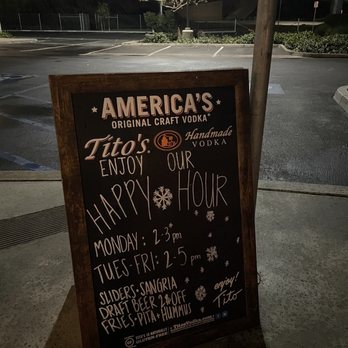 AMERICA'S
ORIGINAL CRAFT VODKA
Tito's Handmade
VODKA
ENJOY OUR
HAPPY HOUR
MONDAY: 2-3pm
TUES-FRI: 2-5pm
SLIDERS • SANGRIA
DRAFT BEER 2$ OFF
FRIES • PITA + HUMMUS
enjoy!
Tito
TitosVodka.com
GLUTEN-FREE